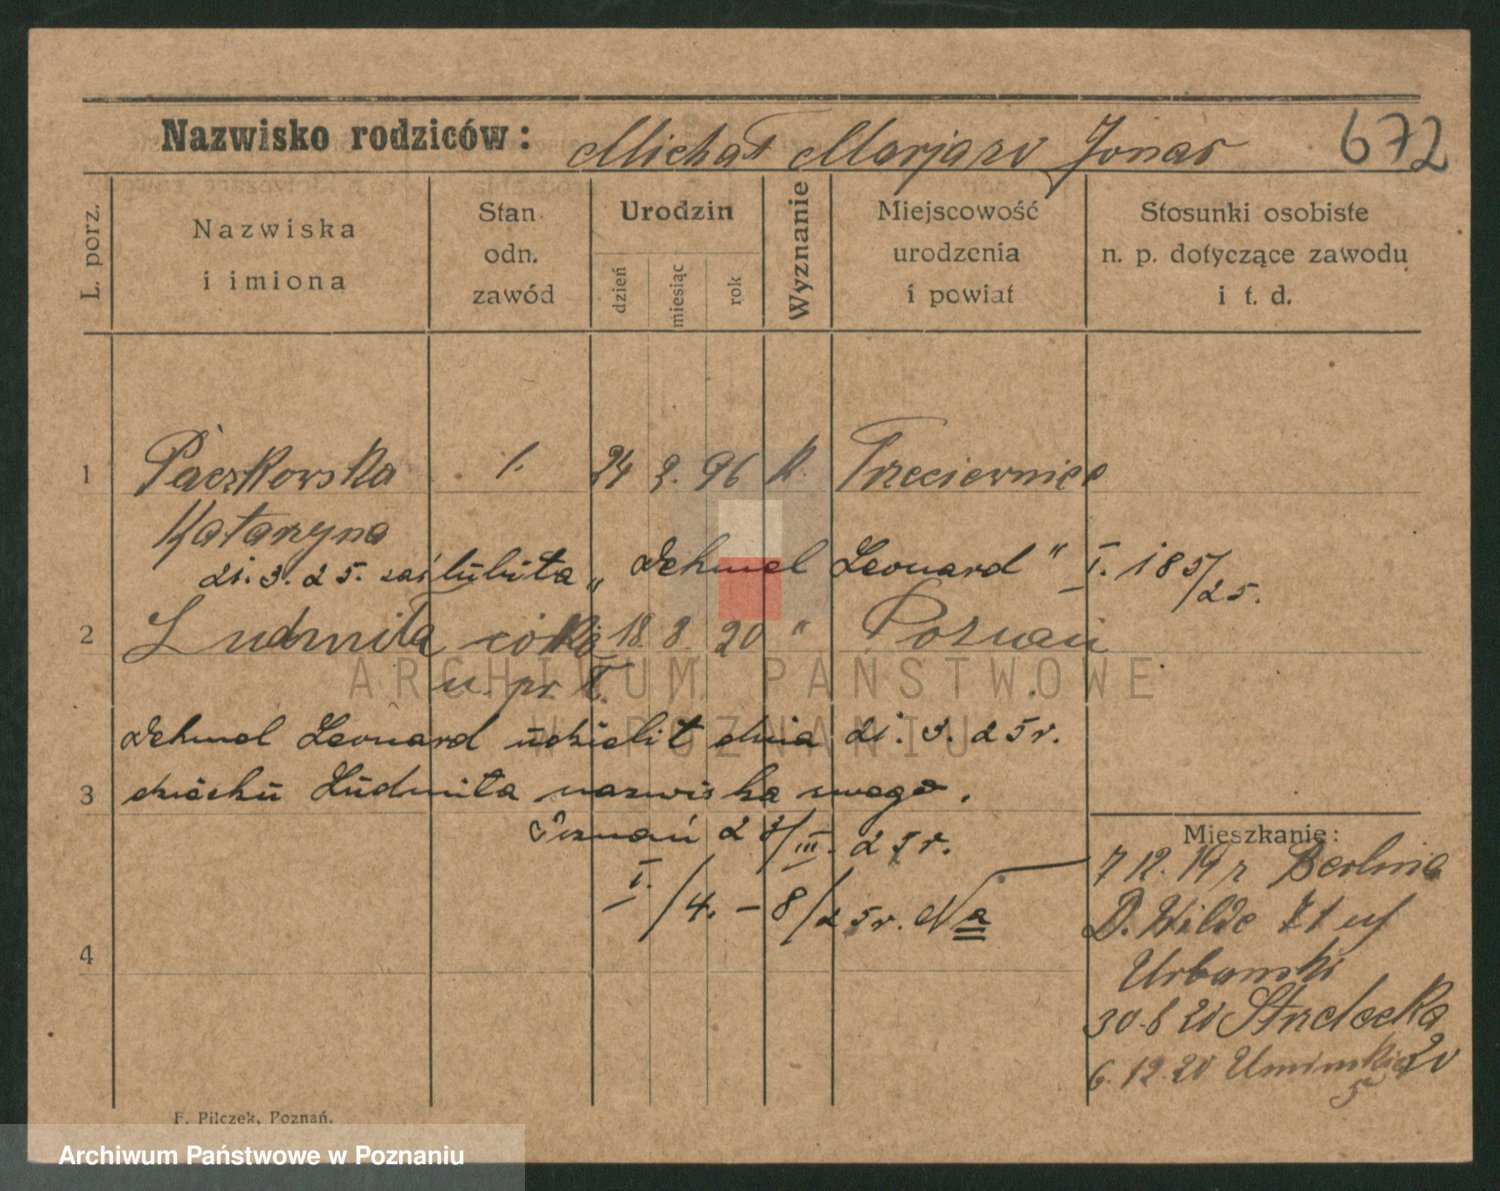 Nazwisko rodziców: Michał Marjann Jonas 672
L. porz.
Nazwiska i imiona
Stan odn. zawód
Urodzin
dzień miesiąc rok
Wyznanie
Miejscowość urodzenia i powiat
Stosunki osobiste n. p. dotyczące zawodu i t. d.
1 Paczkowska 1. 24 9. 96 k. Trzeciewnica
Katarzyna
21. 3. 25. zaślubiła „Dehmel Leonard" I. 185/25.
2 Ludmiła córka 18. 8. 20 " Poznań
u. pr. I.
Dehmel Leonard udzielił dnia 21. 3. 25 r.
3 dziecku Ludmiła nazwiska swego.
Poznań 23/III. 25 r.
I./4. – 8/25 r. Na
4
Mieszkanie:
7 12. 19 r Berlina
D. Wilde 21 uf
Urbanski
30. 8 20 Strzelecka 20
6. 12. 20 Umińskiego 5
F. Pilczek, Poznań.
ARCHIWUM PAŃSTWOWE
W POZNANIU
Archiwum Państwowe w Poznaniu